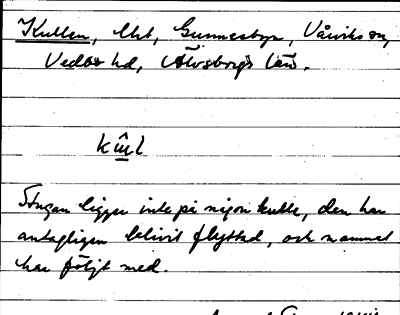 Kullen, lht, Gunnesbyn, Vårviks sn,
Vedbo hd, Älvsborgs län.
kɯ̂l
Stugan ligger inte på någon kulle, den har
antagligen blivit flyttad, och namnet
har följt med.